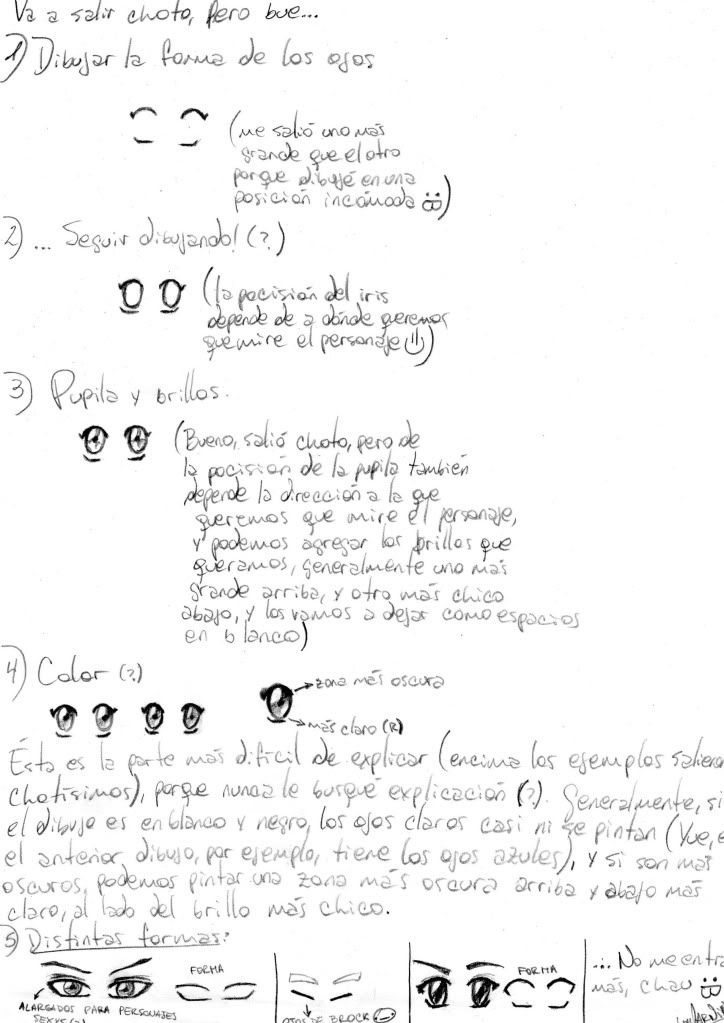 Va a salir choto, pero bue...
1) Dibujar la forma de los ojos
(me salió uno más
grande que el otro
porque dibujé en una
posición incómoda :B)
2) ... Seguir dibujando! (?)
(la pocisión del iris
depende de a dónde queremos
que mire el personaje =))
3) Pupila y brillos.
(Bueno, salió choto, pero de
la pocisión de la pupila también
depende la dirección a la que
queremos que mire el personaje,
y podemos agregar los brillos que
queramos, generalmente uno más
grande arriba, y otro más chico
abajo, y los vamos a dejar como espacios
en blanco)
4) Color (?)
zona más oscura
más claro (R)
Ésta es la parte más difícil de explicar (encima los ejemplos saliero
chotísimos), porque nunca le busqué explicación (?). Generalmente, si
el dibujo es en blanco y negro, los ojos claros casi ni se pintan (Yue, e
el anterior dibujo, por ejemplo, tiene los ojos azules), y si son más
oscuros, podemos pintar una zona más oscura arriba y abajo más
claro, al lado del brillo más chico.
5) Distintas formas:
FORMA
ALARGADOS PARA PERSONAJES
SEXYS (?)
OJOS DE BROCK
FORMA
... No me entra
más, chau :B